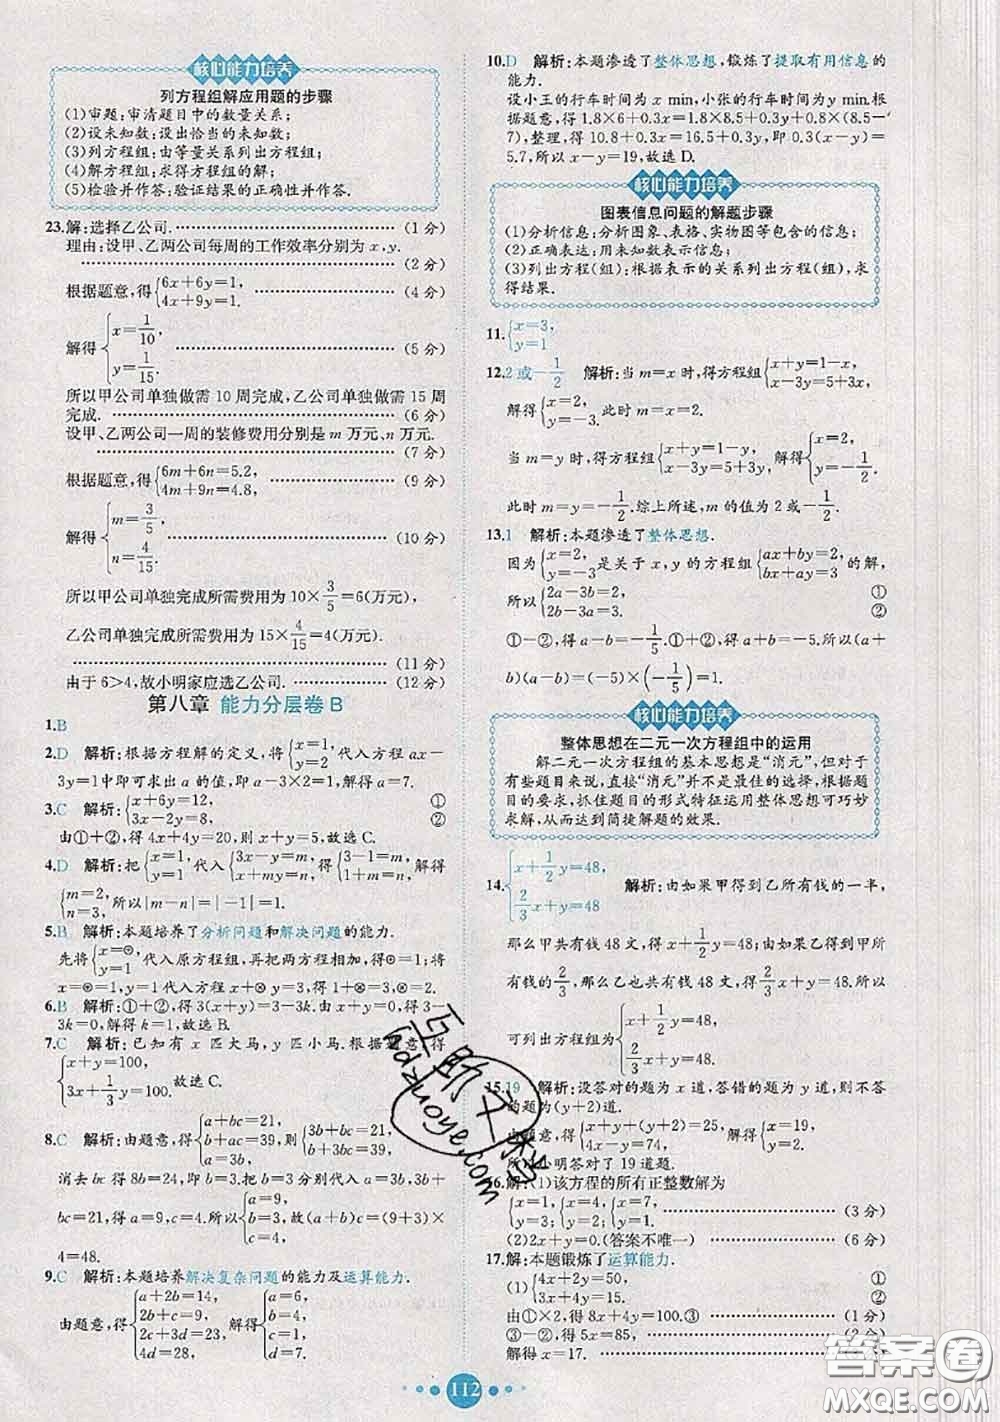 核心能力培养
列方程组解应用题的步骤
(1)审题:审清题目中的数量关系;
(2)设未知数:设出恰当的未知数;
(3)列方程组:由等量关系列出方程组;
(4)解方程组:求出方程组的解;
(5)检验并作答:验证结果的正确性并作答.
23.解:选择乙公司. (1分)
理由:设甲、乙两公司每周的工作效率分别为x,y.
(2分)
根据题意,得{6x+6y=1, 4x+9y=1. (4分)
解得{x=1/10, y=1/15. (5分)
所以甲公司单独做需10周完成,乙公司单独做需15周
完成. (6分)
设甲、乙两公司一周的装修费用分别是m万元、n万元.
(7分)
根据题意,得{6m+6n=5.2, 4m+9n=4.8, (9分)
解得{m=3/5, n=4/15. (10分)
所以甲公司单独完成所需费用为10×3/5=6(万元),
乙公司单独完成所需费用为15×4/15=4(万元).
(11分)
由于6>4,故小明家应选乙公司. (12分)
第八章 能力分层卷B
1.B
2.D 解析:根据方程解的定义,将{x=1, y=2代入方程ax-
3y=1中即可求出a的值,即a-3×2=1,解得a=7.
3.C 解析:{x+6y=12, ① 3x-2y=8, ②
由①+②,得4x+4y=20,则x+y=5,故选C.
4.D 解析:把{x=1, y=1代入{3x-y=m, x+my=n,得{3-1=m, 1+m=n,解得
{m=2, n=3,所以|m-n|=1.
5.B 解析:本题培养了分析问题和解决问题的能力.
先将{x=⊙, y=1代入原方程组,再把两方程相加,得⊙=1;将
x=⊙=1,y=1代入方程x+y=⊗,得1+⊗=3,⊗=2.
6.B 解析:①+②,得3(x+y)=3-3k.由x+y=0,得3-
3k=0,解得k=1,故选B.
7.C 解析:已知有x匹大马,y匹小马.根据题意,得
{x+y=100, 3x+1/3y=100.故选C.
8.C 解析:由题意,得{a+bc=21, b+ac=39, c+ab=39,则{3b+bc=21, b+3c=39,
消去bc得8b=24,即b=3,把b=3代入a+bc=21,3b+
bc=21,得a=9,c=4.所以{a=9, b=3, c=4,故(a+b)c=(9+3)×
4=48.
9.C 解析:本题培养解决复杂问题的能力及运算能力.
由题意,得{a+2b=14, 2b+c=9, 2c+3d=23, 4d=28,解得{a=6, b=4, c=1, d=7.故选C.
10.D 解析:本题渗透了整体思想,锻炼了提取有用信息的
能力.
设小王的行车时间为x min,小张的行车时间为y min,根
据题意,得1.8×6+0.3x=1.8×8.5+0.3y+0.8×(8.5-
7),整理,得10.8+0.3x=16.5+0.3y,即0.3(x-y)=
5.7,所以x-y=19,故选D.
核心能力培养
图表信息问题的解题步骤
(1)分析信息:分析图象、表格、实物图等包含的信息;
(2)正确表达:用未知数表示信息;
(3)列出方程(组):根据表示的关系列出方程(组),求
得结果.
11.{x=3, y=1
12.2或-1/2 解析:当m=x时,得方程组{x+y=1-x, x-3y=5+3x,
解得{x=2, y=-3.此时m=x=2.
当m=y时,得方程组{x+y=1-y, x-3y=5+3y,解得{x=2, y=-1/2.
此时m=y=-1/2.综上所述,m的值为2或-1/2.
13.1 解析:本题渗透了整体思想.
因为{x=2, y=-3是关于x,y的方程组{ax+by=2, bx+ay=3的解,
所以{2a-3b=2, ① 2b-3a=3. ②
①-②,得a-b=-1/5.①+②,得a+b=-5.所以(a+
b)(a-b)=(-5)×(-1/5)=1.
核心能力培养
整体思想在二元一次方程组中的运用
解二元一次方程组的基本思想是“消元”,但对于
有些题目来说,直接“消元”并不是最佳的选择,根据题
目的要求,抓住题目的形式特征运用整体思想可巧妙
求解,从而达到简捷解题的效果.
14.{x+1/2y=48, 2/3x+y=48 解析:由如果甲得到乙所有钱的一半,
那么甲共有钱48文,得x+1/2y=48;由如果乙得到甲所
有钱的2/3,那么乙也共有钱48文,得2/3x+y=48,所以
可列方程组为{x+1/2y=48, 2/3x+y=48.
15.19 解析:设答对的题为x道,答错的题为y道,则不答
的题为(y+2)道.
由题意,得{x+y+(y+2)=25, 4x-y=74,解得{x=19, y=2.
所以小明答对了19道题.
16.解:(1)该方程的所有正整数解为
{x=1, y=3, {x=4, y=2, {x=7, y=1. (3分)
(2)2x+y=0.(答案不唯一) (6分)
17.解:本题锻炼了运算能力.
(1){4x+2y=50, ① 3x+4y=15, ②
由①×2,得8x+4y=100.③ (1分)
③-②,得5x=85, (2分)
解得x=17.
112
互助文档
hdzuoye.com
答案圈
MXQE.COM